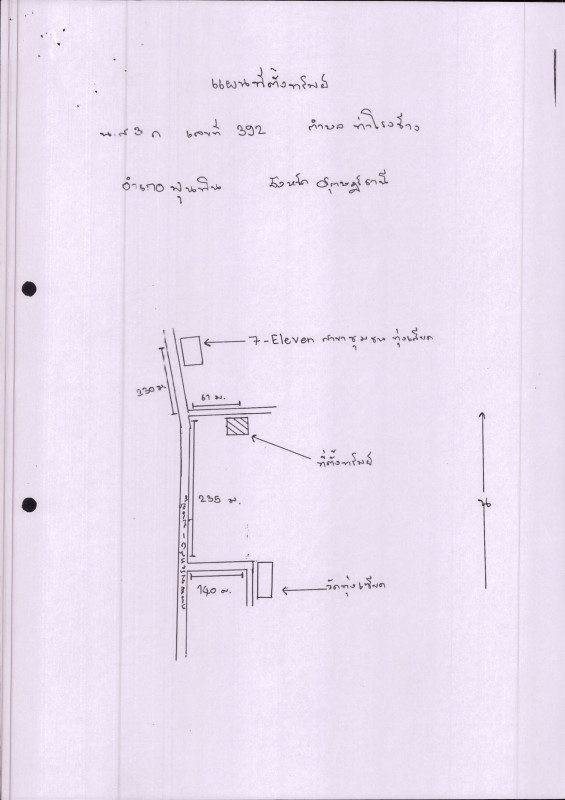 แผนที่ตั้งทรัพย์
น.ส 3 ก เลขที่ 392 ตำบล ท่าโรงช้าง
อำเภอ พุนพิน จังหวัด สุราษฎร์ธานี
7-Eleven สาขา ชุมชน ทุ่งเซียด
230 ม.
61 ม.
ที่ตั้งทรัพย์
235 ม.
น
140 ม.
วัดทุ่งเซียด